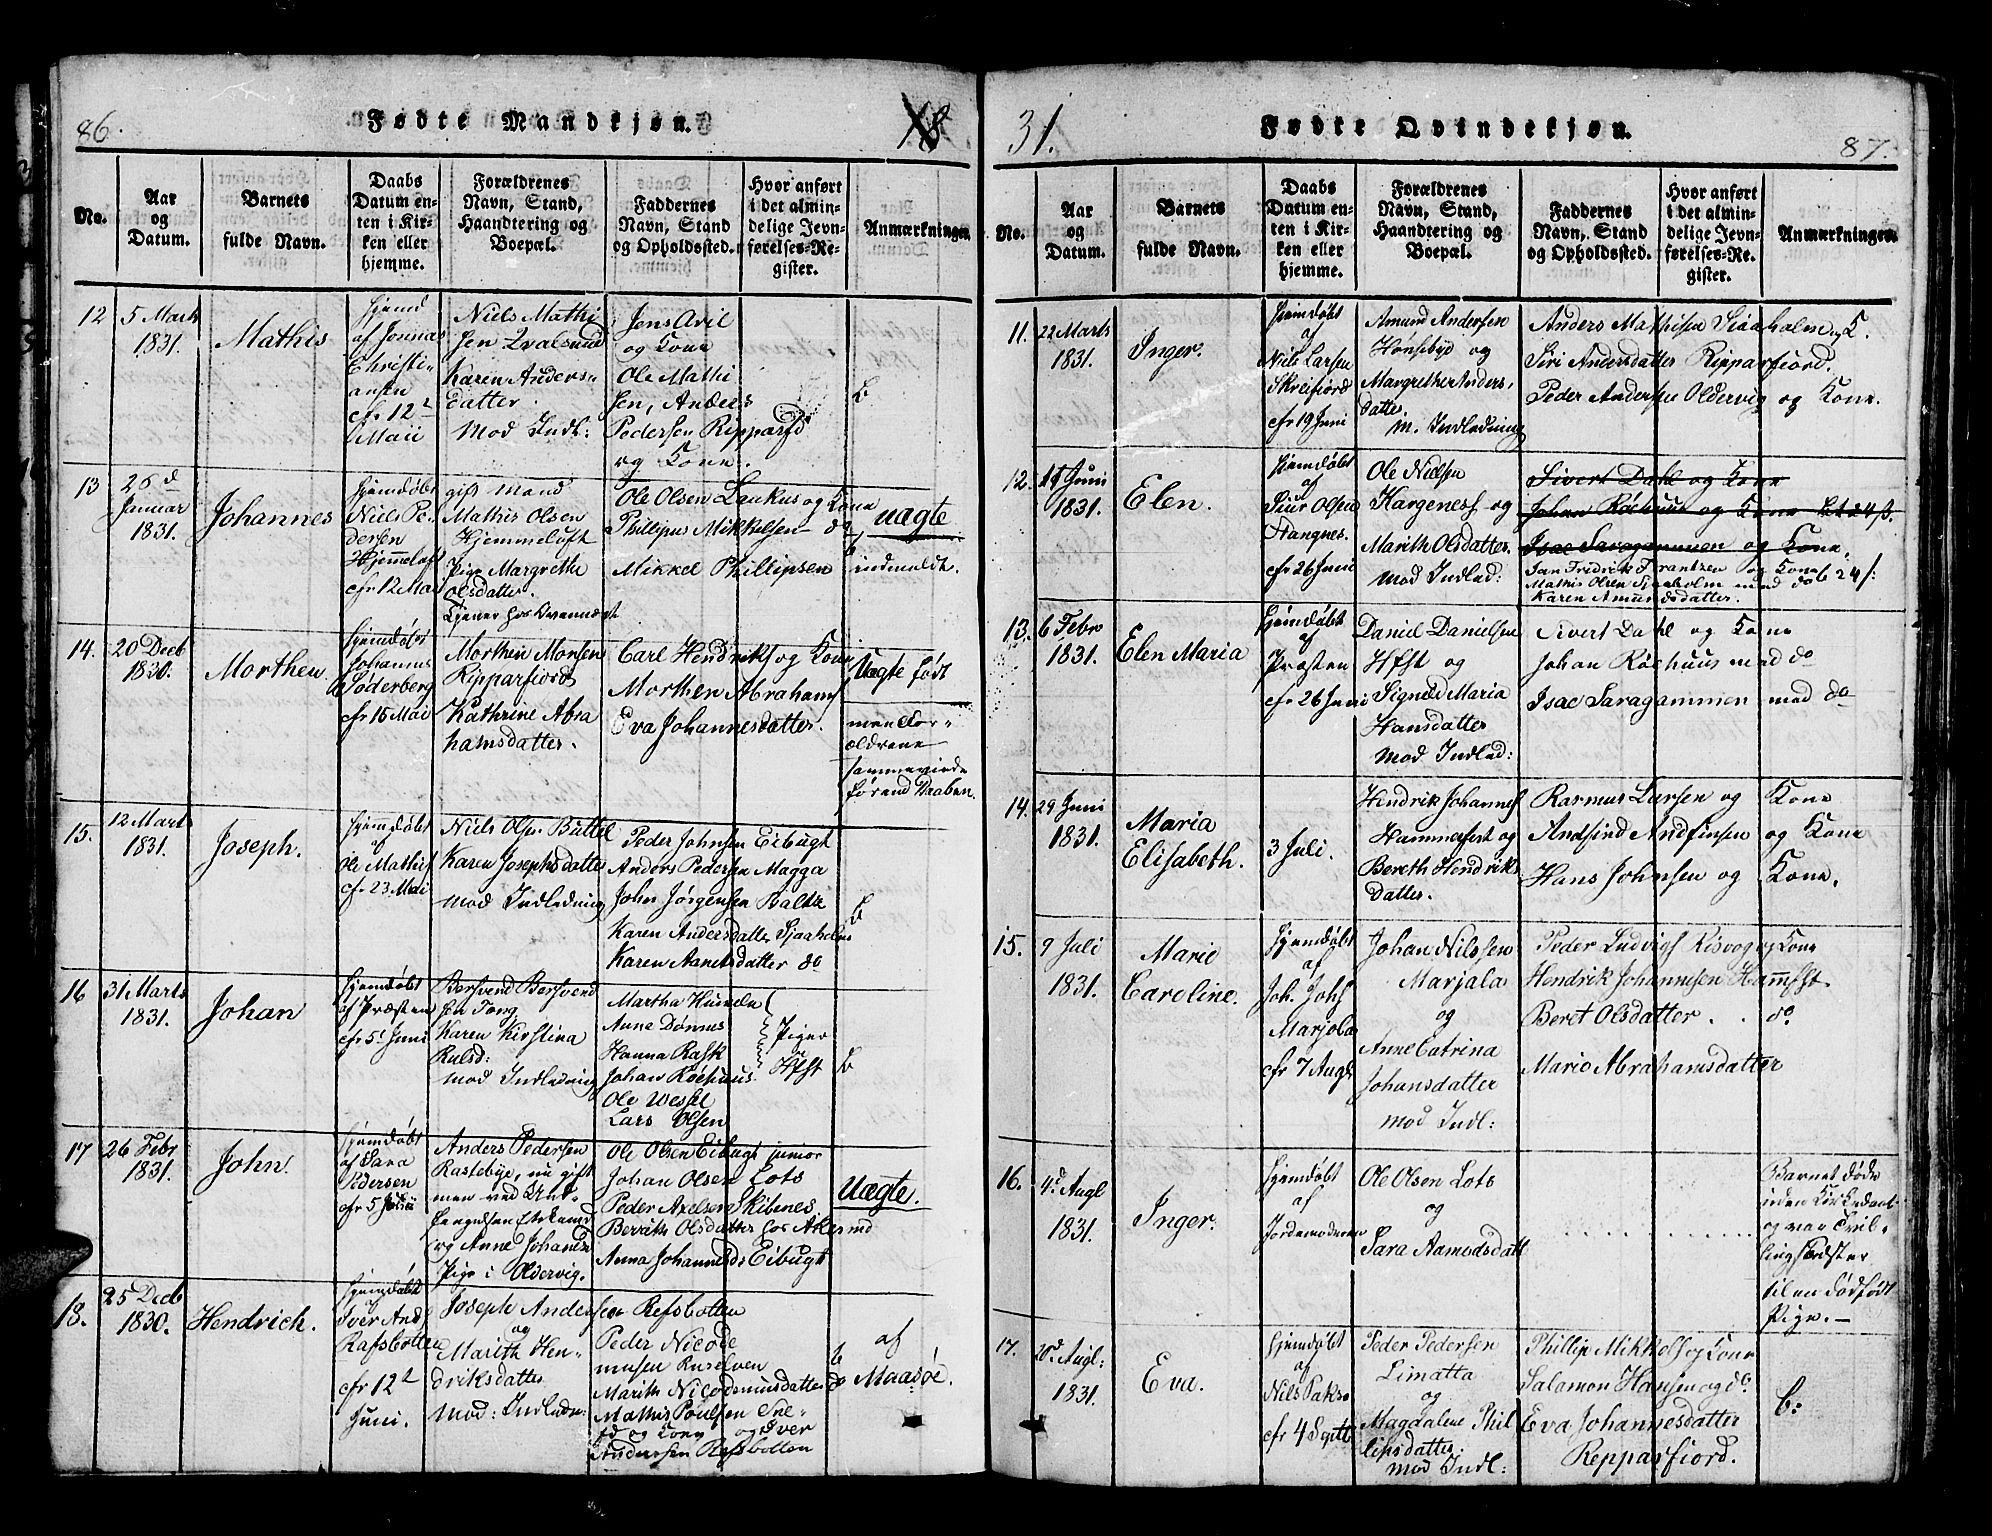 86.
Fødte Mandkjøn.
18
No.
Aar
og
Datum.
Barnets
fulde Navn.
Daabs
Datum en-
ten i Kir-
ken eller
hjemme.
Forældrenes
Navn, Stand,
Haandtering og
Boepæl.
Faddernes
Navn, Stand
og Opholdssted.
Hvor anført
i det almin-
delige Jevn-
førelses-Re-
gister.
Anmærkninger
12
5 Marts
1831.
Mathis
hjemd
af Jonnas
Christi-
ansen
cfr 12te
Maii
Niels Mathi
sen Qvalsund
Karen Anders-
datter.
mod Indl:
Jens Avil
og Kone
Ole Mathi
sen, Anders
Pedersen Ripparfd
og Kone.
b
13
25d
Januar
1831.
Johannes
hjemdøbt
Niels Pe-
dersen
Hjemmeluft
cfr 12 Mai
gift Mand
Mathis Olsen
Hjemmeluft
Pige Margrethe
Olsdatter.
tjener hos Qvænnægt
Ole Olsen Leukus og Kone
Phillipus Mikkelsen do
Mikkel Phillipsen
uægte
b
indmeldt.
14.
20 Decb
1830.
Morthen.
hjemdøbt
Johannes
Søderberg
cfr 15 Mai
Morthen Monsen
Ripparfiord
Kathrine Abra
hamsdatter.
Carl Hendriks og Kone
Morthen Abrahams
Eva Johannesdatter.
Uægte født
men For-
ældrene
sammeviede
førend Daaben.
15.
12 Marts
1831.
Joseph.
hjemdøbt
af
Ole Mathis
cfr 23 Mai
Niels Olsen Buttel
Karen Josephsdatter
mod Indledning
Peder Johnsen Eibugt
Anders Pedersen Magga
John Jørgensen Baltzi
Karen Andersdatter Sjaaholm
Karen Aanetsdatter do
b
16
31 Marts
1831.
Johan
hjemdøbt
af Præsten
cfr 5t Juni
Bersvend Bersvend
sen Tong
Karen Kirstina
Rulsd:
mod Indledning
Martha Husseln
Anne Dønnes
Hanna Rask
Johan Röehuus
Ole Wessel
Lars Olsen
Piger
i
Hfst
b
17
26 Febr
1831.
John.
hjemdøbt
af Sara
Pedersen
cfr 5 Julii
Anders Pedersen
Rastebye, nu gift
men ved Und-
fangelsen Enkemd
og Anne Johannesd
Pige i Oldervig.
Ole Olsen Eibugt junior
Johan Olsen Lots
Peder Axelsen Skibnes
Berith Olsdatter
Anna Johannesd Eibugt
Uægte.
18.
25 Decb
1830.
Hendrich.
hjemdøbt
af
Iver And
Rafsbotten
cfr 12te
Juni.
Joseph Andersen Refsbotten
og
Marith Hen-
driksdatter
mod: Indledn:
Peder Nicode
musen Ruselven
Marith Nicodemusdatter do
Mathis Poulsen
og Kone og Iver
Andersen Refsbotten
b
af
Maasøe.
31.
Fødte Qvindekjøn.
87.
No.
Aar
og
Datum.
Barnets
fulde Navn.
Daabs
Datum en-
ten i Kir-
ken eller
hjemme.
Forældrenes
Navn, Stand,
Haandtering og
Boepæl.
Faddernes
Navn, Stand
og Opholdssted.
Hvor anført
i det almin-
delige Jevn-
førelses-Re-
gister.
Anmærkninger.
11.
22 Marts
1831.
Inger.
hjemdøbt
af
Niels Larsen
Skreifiord
cfr 19 Juni
Amund Andersen
Honsebyd og
Margrethe Anders-
datter.
m. Indledning
Anders Mathisen Siaaholm og K.
Siri Andersdatter Ripparfiord.
Peder Andersen Oldervig og Kone.
12.
11 Juni
1831.
Elen.
hjemdøbt
af
Siur Olsen
Stangnes.
cfr 26 Juni
Ole Nielsen
Kargeness og
Marith Olsdatter.
mod Indled:
Sivert Dahl og Kone
Johan Röehuus og Kone bet 24 s.
Isac Saragammen og Kone.
Jan Fredrik Frantzen og Kone
Mathis Olsen Sjaaholm med do b 24 s:
Karen Amundsdatter.
13.
6 Febr
1831.
Elen Maria
hjemdøbt
af
Præsten
cfr 26 Juni
Daniel Danielsen
Hfst og
Signed Maria
Hansdatter
mod Indled:
Sivert Dahl og Kone
Johan Röehuus med do
Isac Saragammen med do
14.
29 Juni
1831.
Maria
Elisabeth.
3 Juli.
Hendrik Johannes
Hammerfest og
Bereth Hendriks
datter.
Rasmus Larsen og Kone
Andfind Andfinsen og Kone
Hans Johnsen og Kone.
15.
9 Juli
1831.
Marie
Caroline.
hjemdøbt
af
Joh. Johs
Marjola
cfr 7 Augl
Johan Nilssen
Marjala
og
Anne Catrina
Johansdatter
mod Indl:
Peder Ludvigs Risvog og Kone
Hendrik Johannesen Hammfst.
Beret Olsdatter . . do
Marie Abrahamsdatter
16.
4d. Augl
1831.
Inger.
hjemdøbt
af
Jordemoderen
Ole Olsen Lots
og
Sara Aamodsdatt
Barnet døde
uden Kirkedaab
og var Tvil-
lingsøster
til en dødfødt
Pige. —
17.
20d. Augl:
1831.
Eva.
hjemdøbt
af
Niels Paks.
cfr 4 Septb
Peder Pedersen
Limatta
og
Magdalene Phil
lipsdatter.
mod Indl:
Phillip Mikkels og Kone
Salamon Hansen og do.
Eva Johannesdatter
Repparfiord.
b: